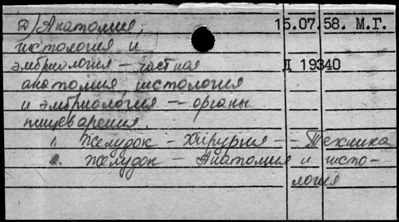 Д) Анатомия, 15.07.58. М.Г.
гистология и
эмбриология — частная Д 19340
анатомия, гистология
и эмбриология — органы
пищеварения.
1. Желудок — Хирургия — Техника
2. Желудок — Анатомия и гисто-
логия